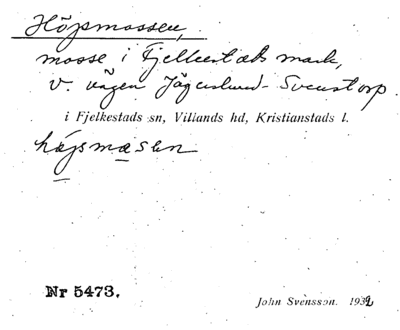 Höjsmossen,
mosse i Fjelkestads mark,
v. vägen Jägerslund-Svenstorp.
i Fjelkestads sn, Villands hd, Kristianstads l.
håjsmosen
Nr 5473.
John Svensson. 1932